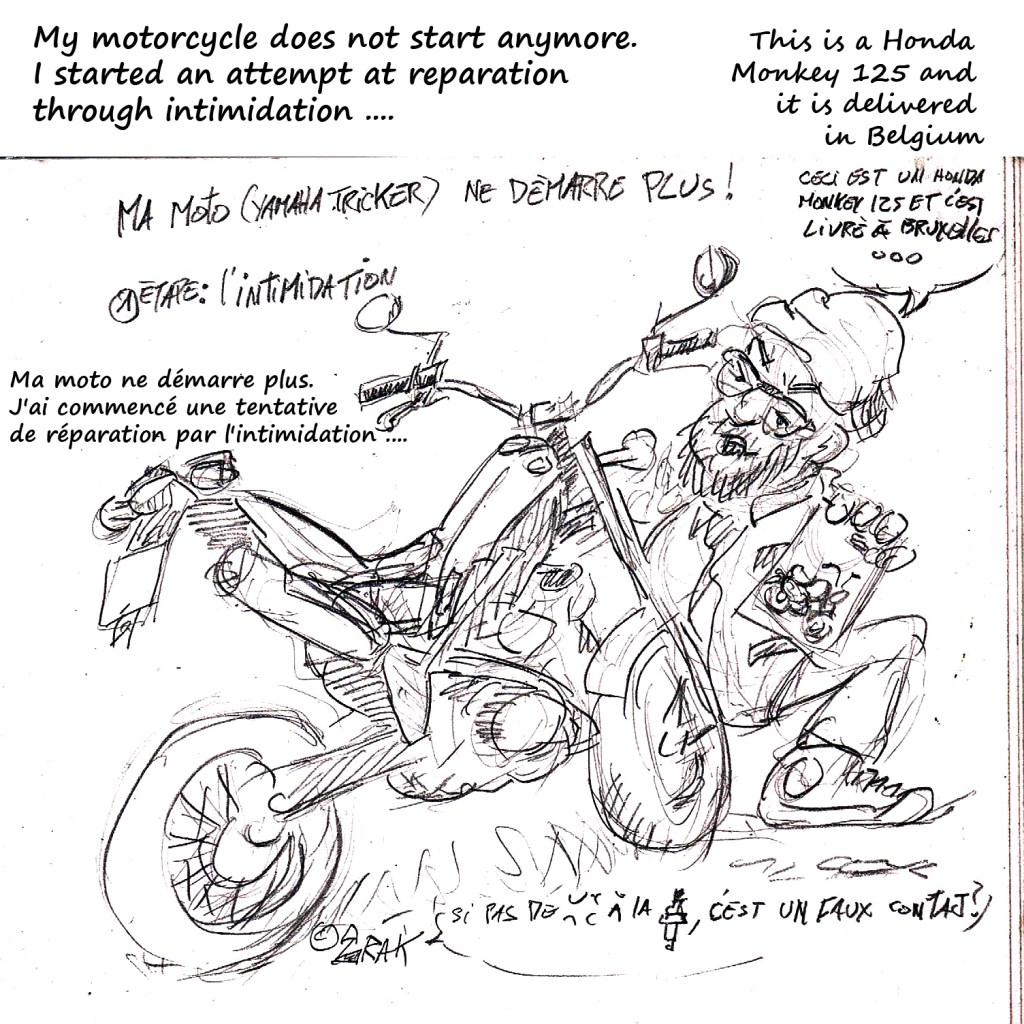 My motorcycle does not start anymore.
I started an attempt at reparation
through intimidation ....
This is a Honda
Monkey 125 and
it is delivered
in Belgium
MA MOTO (YAMAHA TRICKER) NE DÈMARRE PLUS!
CECI EST UN HONDA
MONKEY 125 ET C'EST
LIVRÈ À BRUXELLES
ooo
① ÈTAPE: l'INTIMIDATION
Ma moto ne démarre plus.
J'ai commencé une tentative
de réparation par l'intimidation ....
(SI PAS DE À lA , C'EST UN FAUX CONTACT?)
©